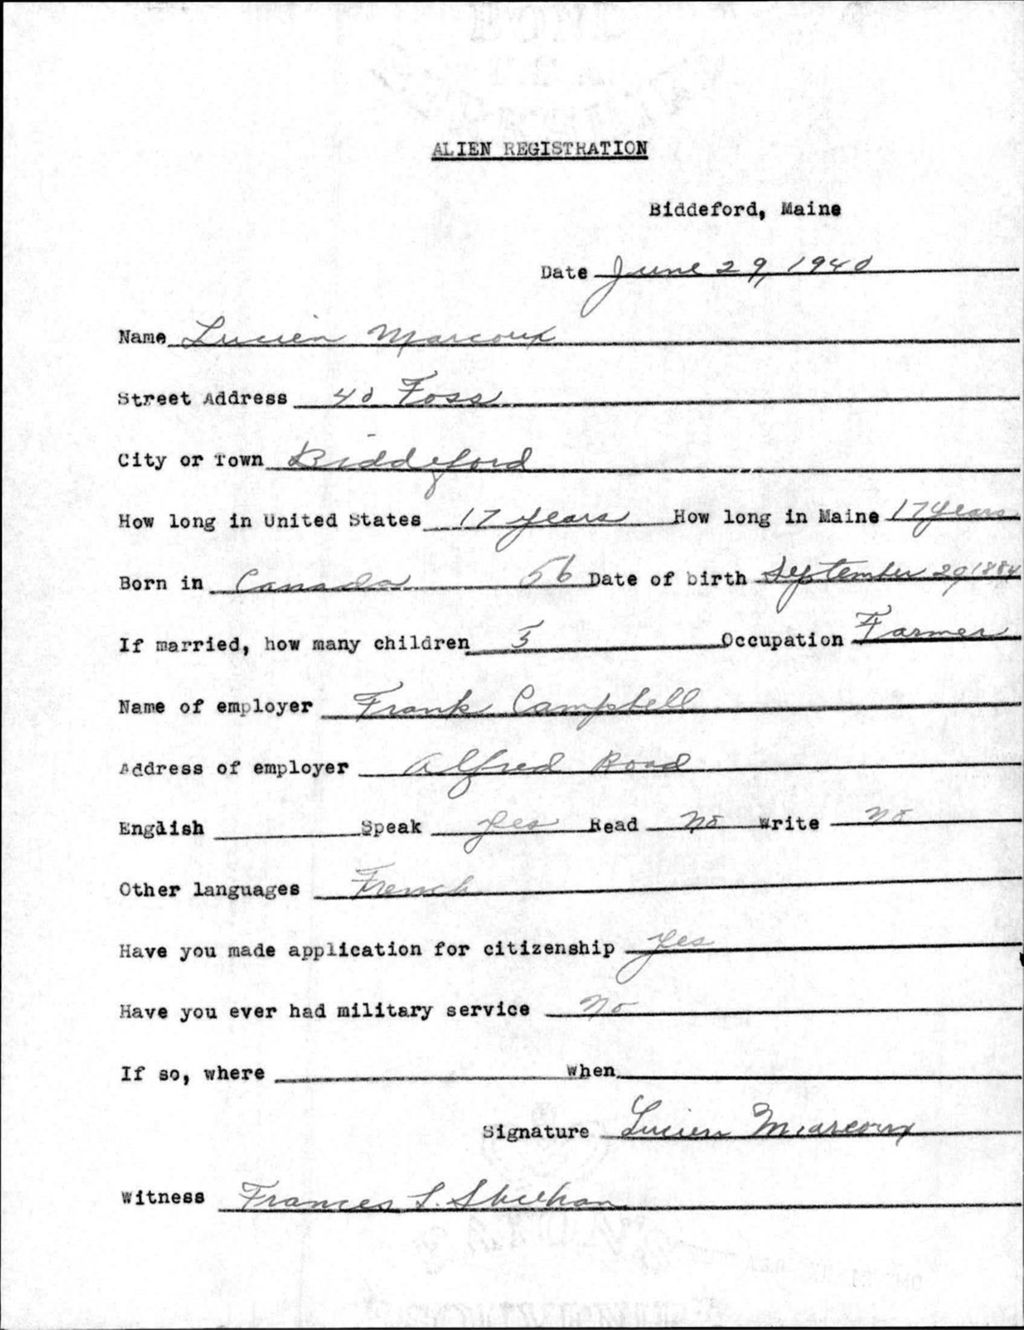 ALIEN REGISTRATION
Biddeford, Maine
Date June 29, 1940
Name Lucien Marcoux
Street Address 40 Foss
City or Town Biddeford
How long in United States 17 years How long in Maine 17 years
Born in Canada 56 Date of birth September 29 1884
If married, how many children 5 Occupation Farmer
Name of employer Frank Campbell
Address of employer Alfred Road
English Speak yes Read No Write No
Other languages French
Have you made application for citizenship yes
Have you ever had military service No
If so, where when
Signature Lucien Marcoux
Witness Frances L. Sheehan